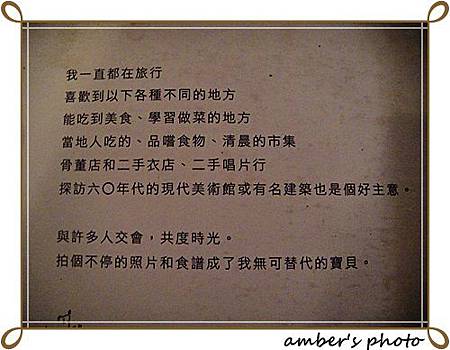 我一直都在旅行
喜歡到以下各種不同的地方
能吃到美食、學習做菜的地方
當地人吃的、品嚐食物、清晨的市集
骨董店和二手衣店、二手唱片行
探訪六〇年代的現代美術館或有名建築也是個好主意。
與許多人交會，共度時光。
拍個不停的照片和食譜成了我無可替代的寶貝。
amber's photo